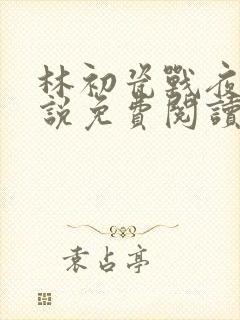 林初瓷戰夜
說免費閱讀
袁占亭